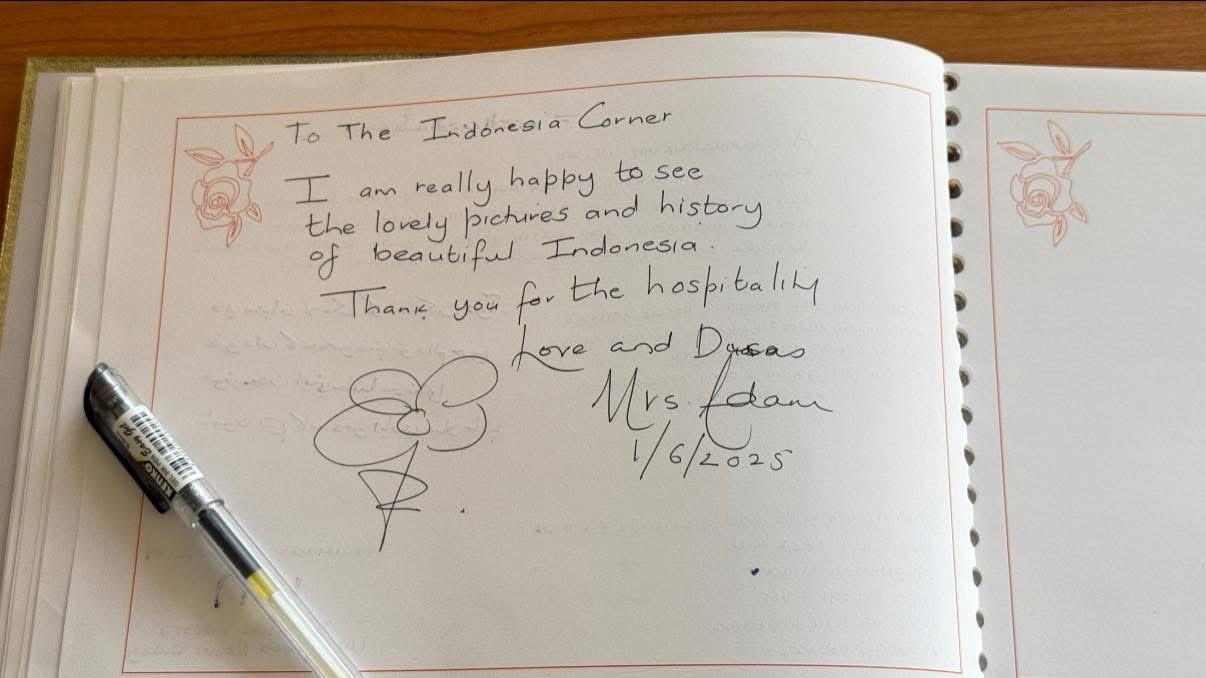 To The Indonesia Corner
I am really happy to see
the lovely pictures and history
of beautiful Indonesia.
Thank you for the hospitality
Love and
Mrs. Adam
1/6/2025
Easy gel